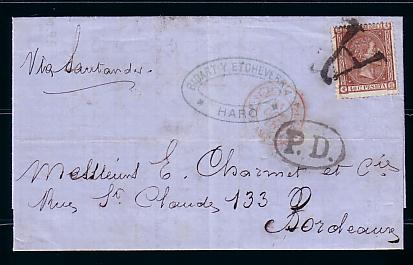 Via Santander.
BUHART Y ETCHEVERS
HARO
40 C. PESETA
P.D.
Messieurs E. Charmet et Cie
Rue St Claude 133
Bordeaux